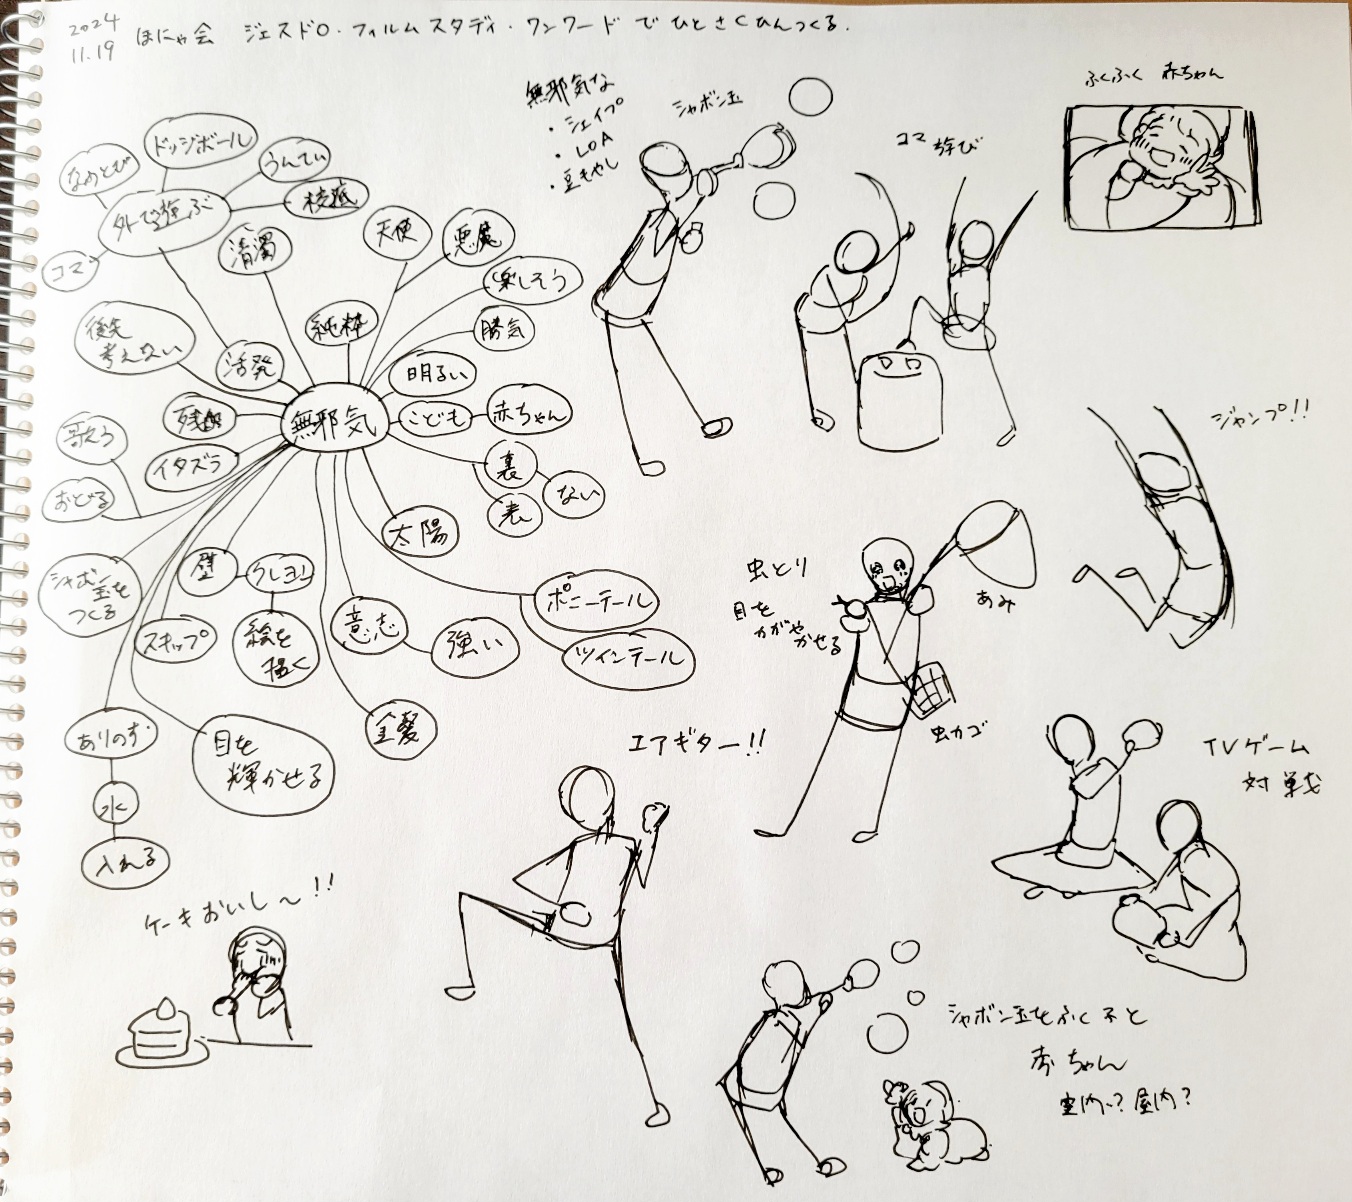 2024
11.19
ほにゃ会 ジェスドロ・フィルムスタディ・ワンワードでひとさくひんつくる.
無邪気な
・シェイプ
・LOA
・豆もやし
シャボン玉
コマ遊び
ふくふく 赤ちゃん
なわとび
ドッジボール
うんてい
外で遊ぶ
校庭
コマ
清濁
天使
悪魔
楽しそう
後先
考えない
純粋
勝気
活発
明るい
無邪気
こども
赤ちゃん
残酷
歌う
イタズラ
裏
ない
表
おどる
太陽
シャボン玉を
つくる
壁
クレヨン
スキップ
絵を
描く
意志
強い
ポニーテール
ツインテール
金髪
ありのす
水
入れる
目を
輝かせる
ジャンプ!!
虫とり
目を
かがやかせる
あみ
虫カゴ
エアギター!!
TVゲーム
対戦
ケーキおいし〜!!
シャボン玉をふく子と
赤ちゃん
室内?屋内?